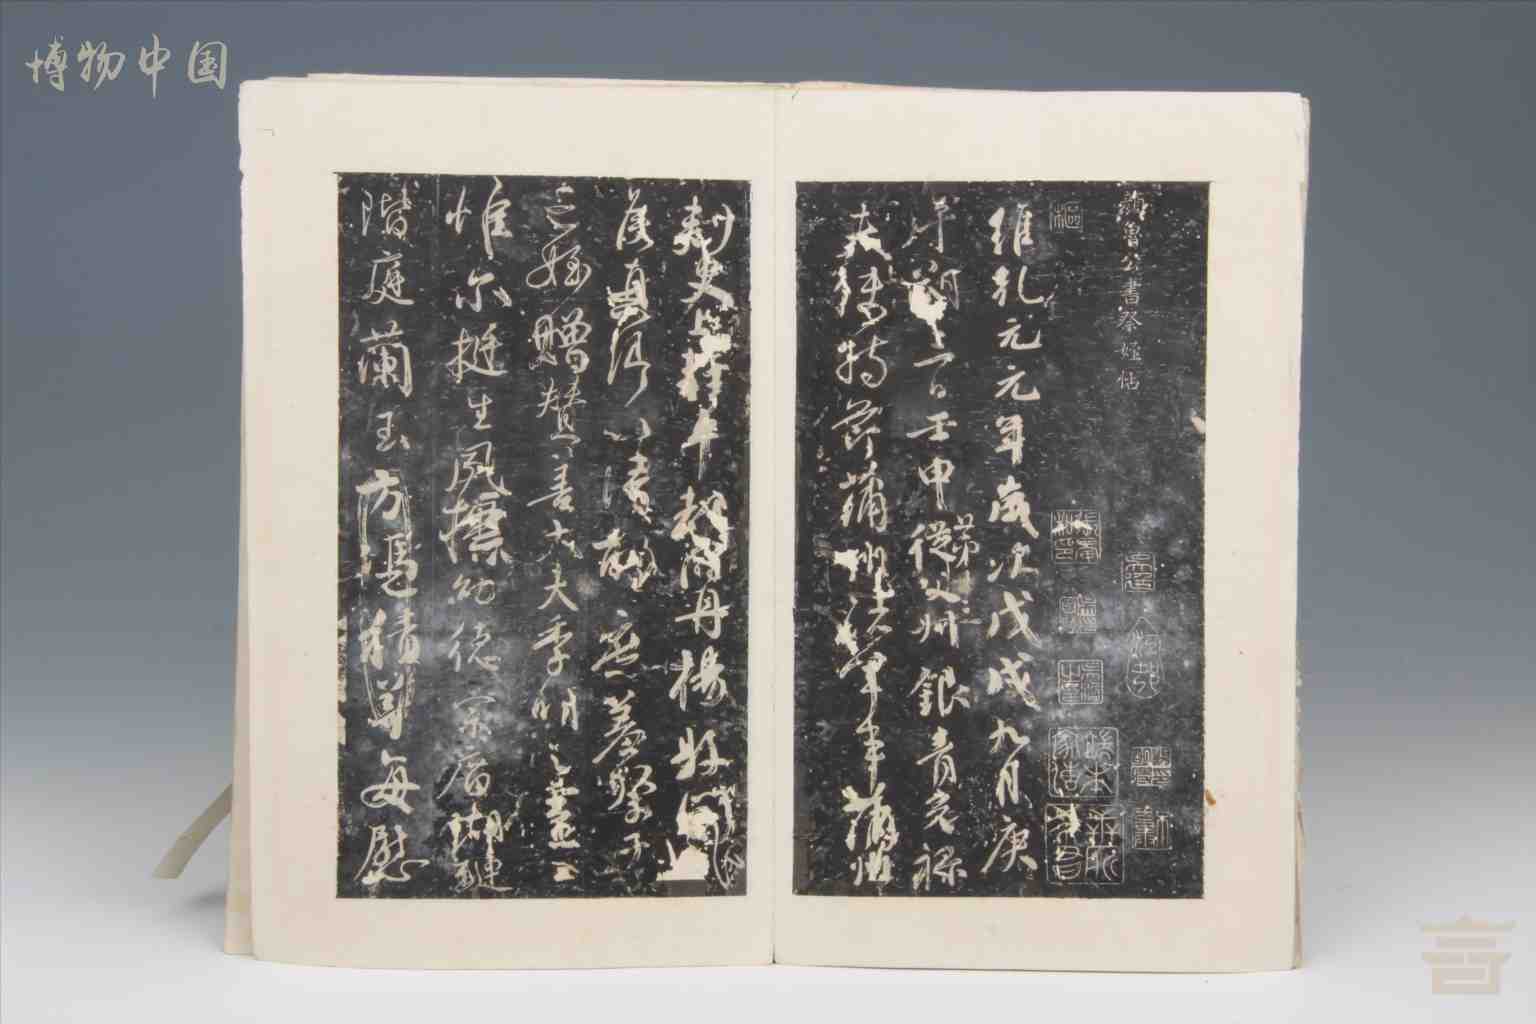 博物中国
顏魯公書祭姪帖
維乾元元年歲次戊戌九月庚
午朔三日壬申第十三從父州銀青光祿
夫使持節蒲州諸軍事蒲州
刺史上輕車都尉丹楊縣開國
侯真卿以清酌庶羞祭于
亡姪贈贊善大夫季明之靈曰
惟爾挺生夙標幼德宗廟瑚璉
階庭蘭玉方憑積善每慰